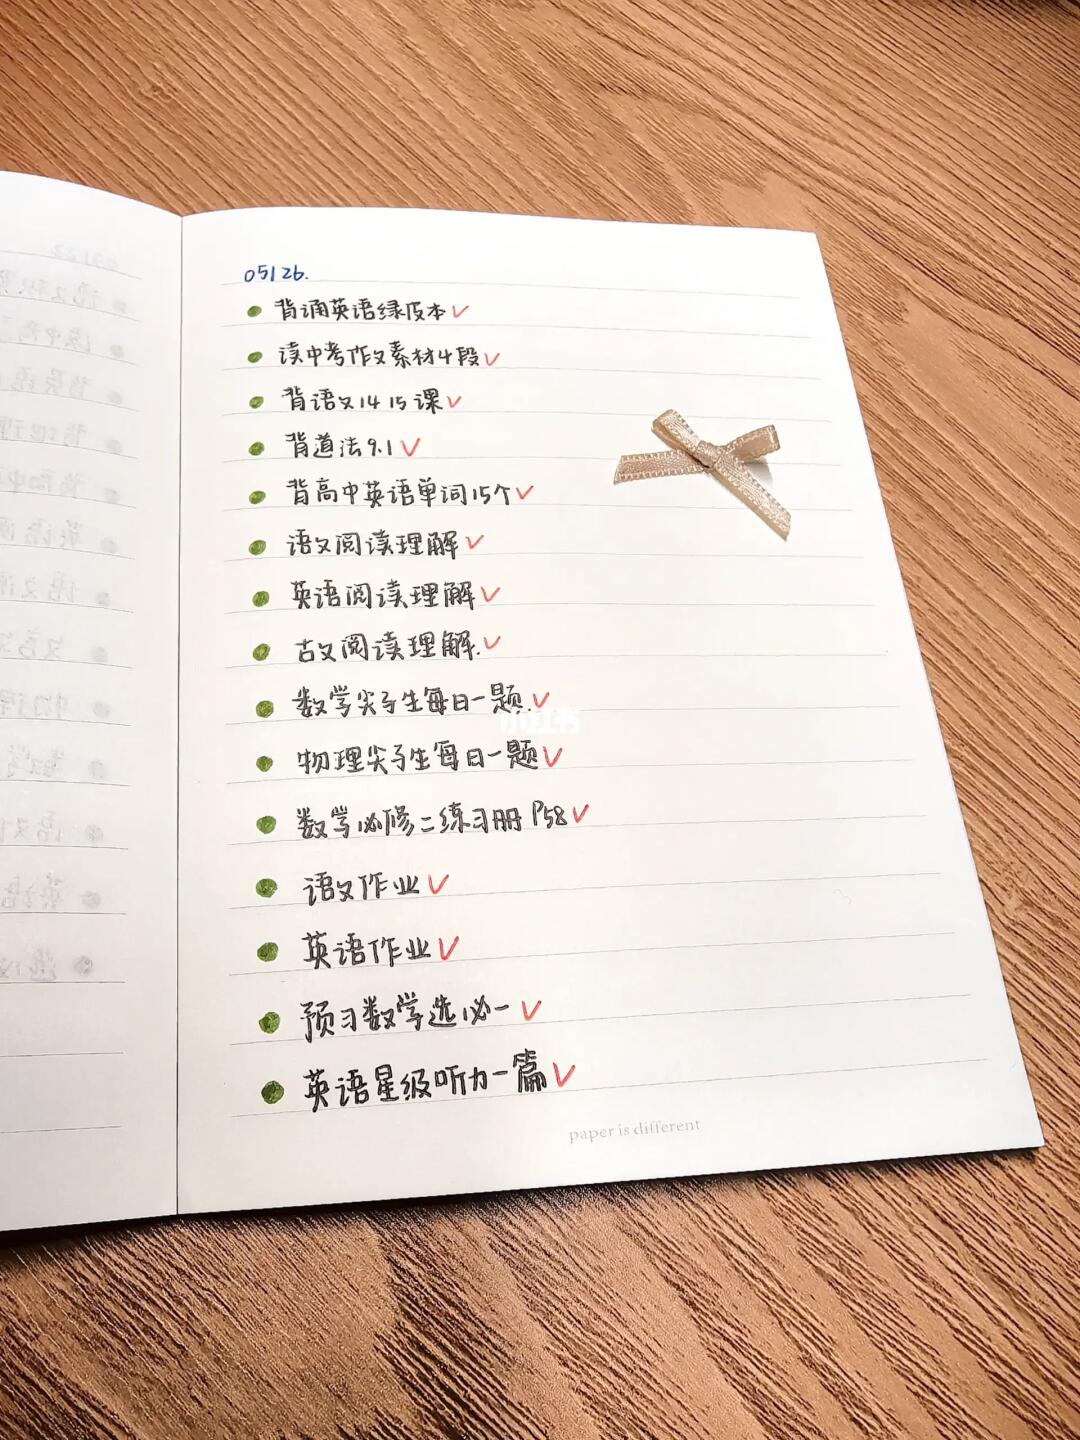 05126.
背诵英语绿皮本
读中考作文素材4段
背语文14 15课
背道法9.1
背高中英语单词15个
语文阅读理解
英语阅读理解
古文阅读理解.
数学尖子生每日一题.
小红书
物理尖子生每日一题
数学必修二练习册 P58
语文作业
英语作业
预习数学选必一
英语星级听力一篇
paper is different